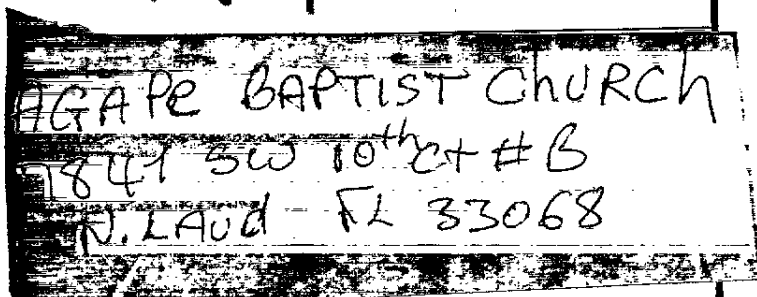 AGAPe BAPTIST ChURCh
7841 SW 10th Ct # B
N. LAUd FL 33068